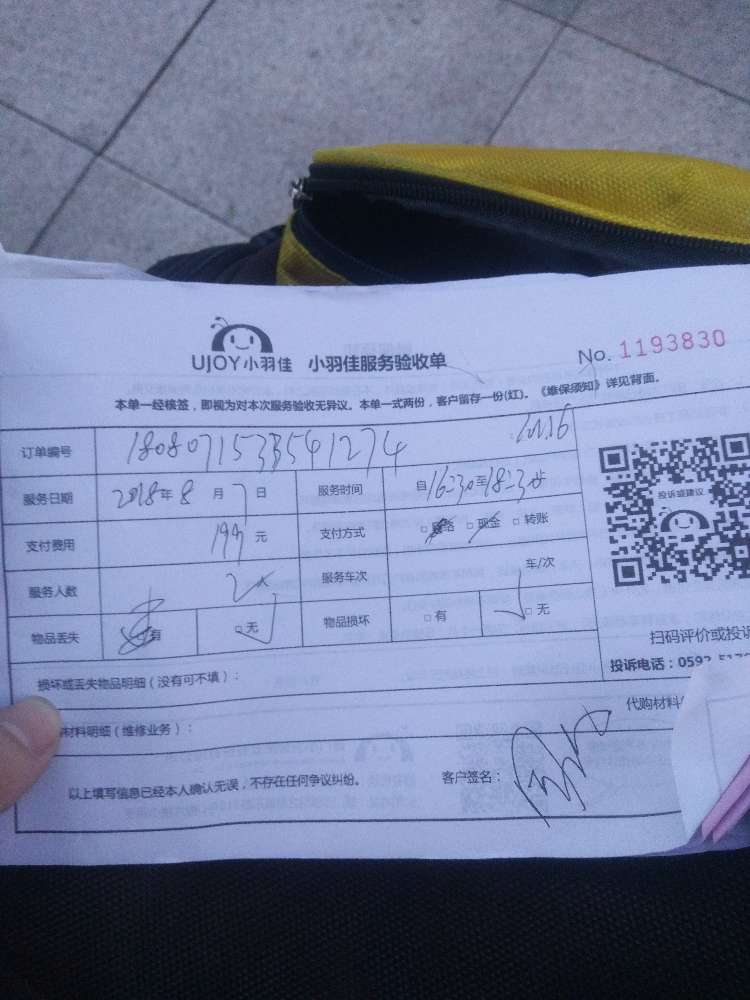 UJOY小羽佳 小羽佳服务验收单 No. 1193830
本单一经核签，即视为对本次服务验收无异议。本单一式两份，客户留存一份(红)。《维保须知》详见背面。
订单编号 1808071533541274
服务日期 2018年8月7日 服务时间 自16:30至18:30
支付费用 199元 支付方式 □网络 □现金 □转账
服务人数 2人 服务车次 车/次
物品丢失 □有 □无 物品损坏 □有 □无
投诉或建议
扫码评价或投诉
投诉电话：0592-517
损坏或丢失物品明细（没有可不填）：
材料明细（维修业务）： 代购材料
以上填写信息已经本人确认无误，不存在任何争议纠纷。 客户签名：